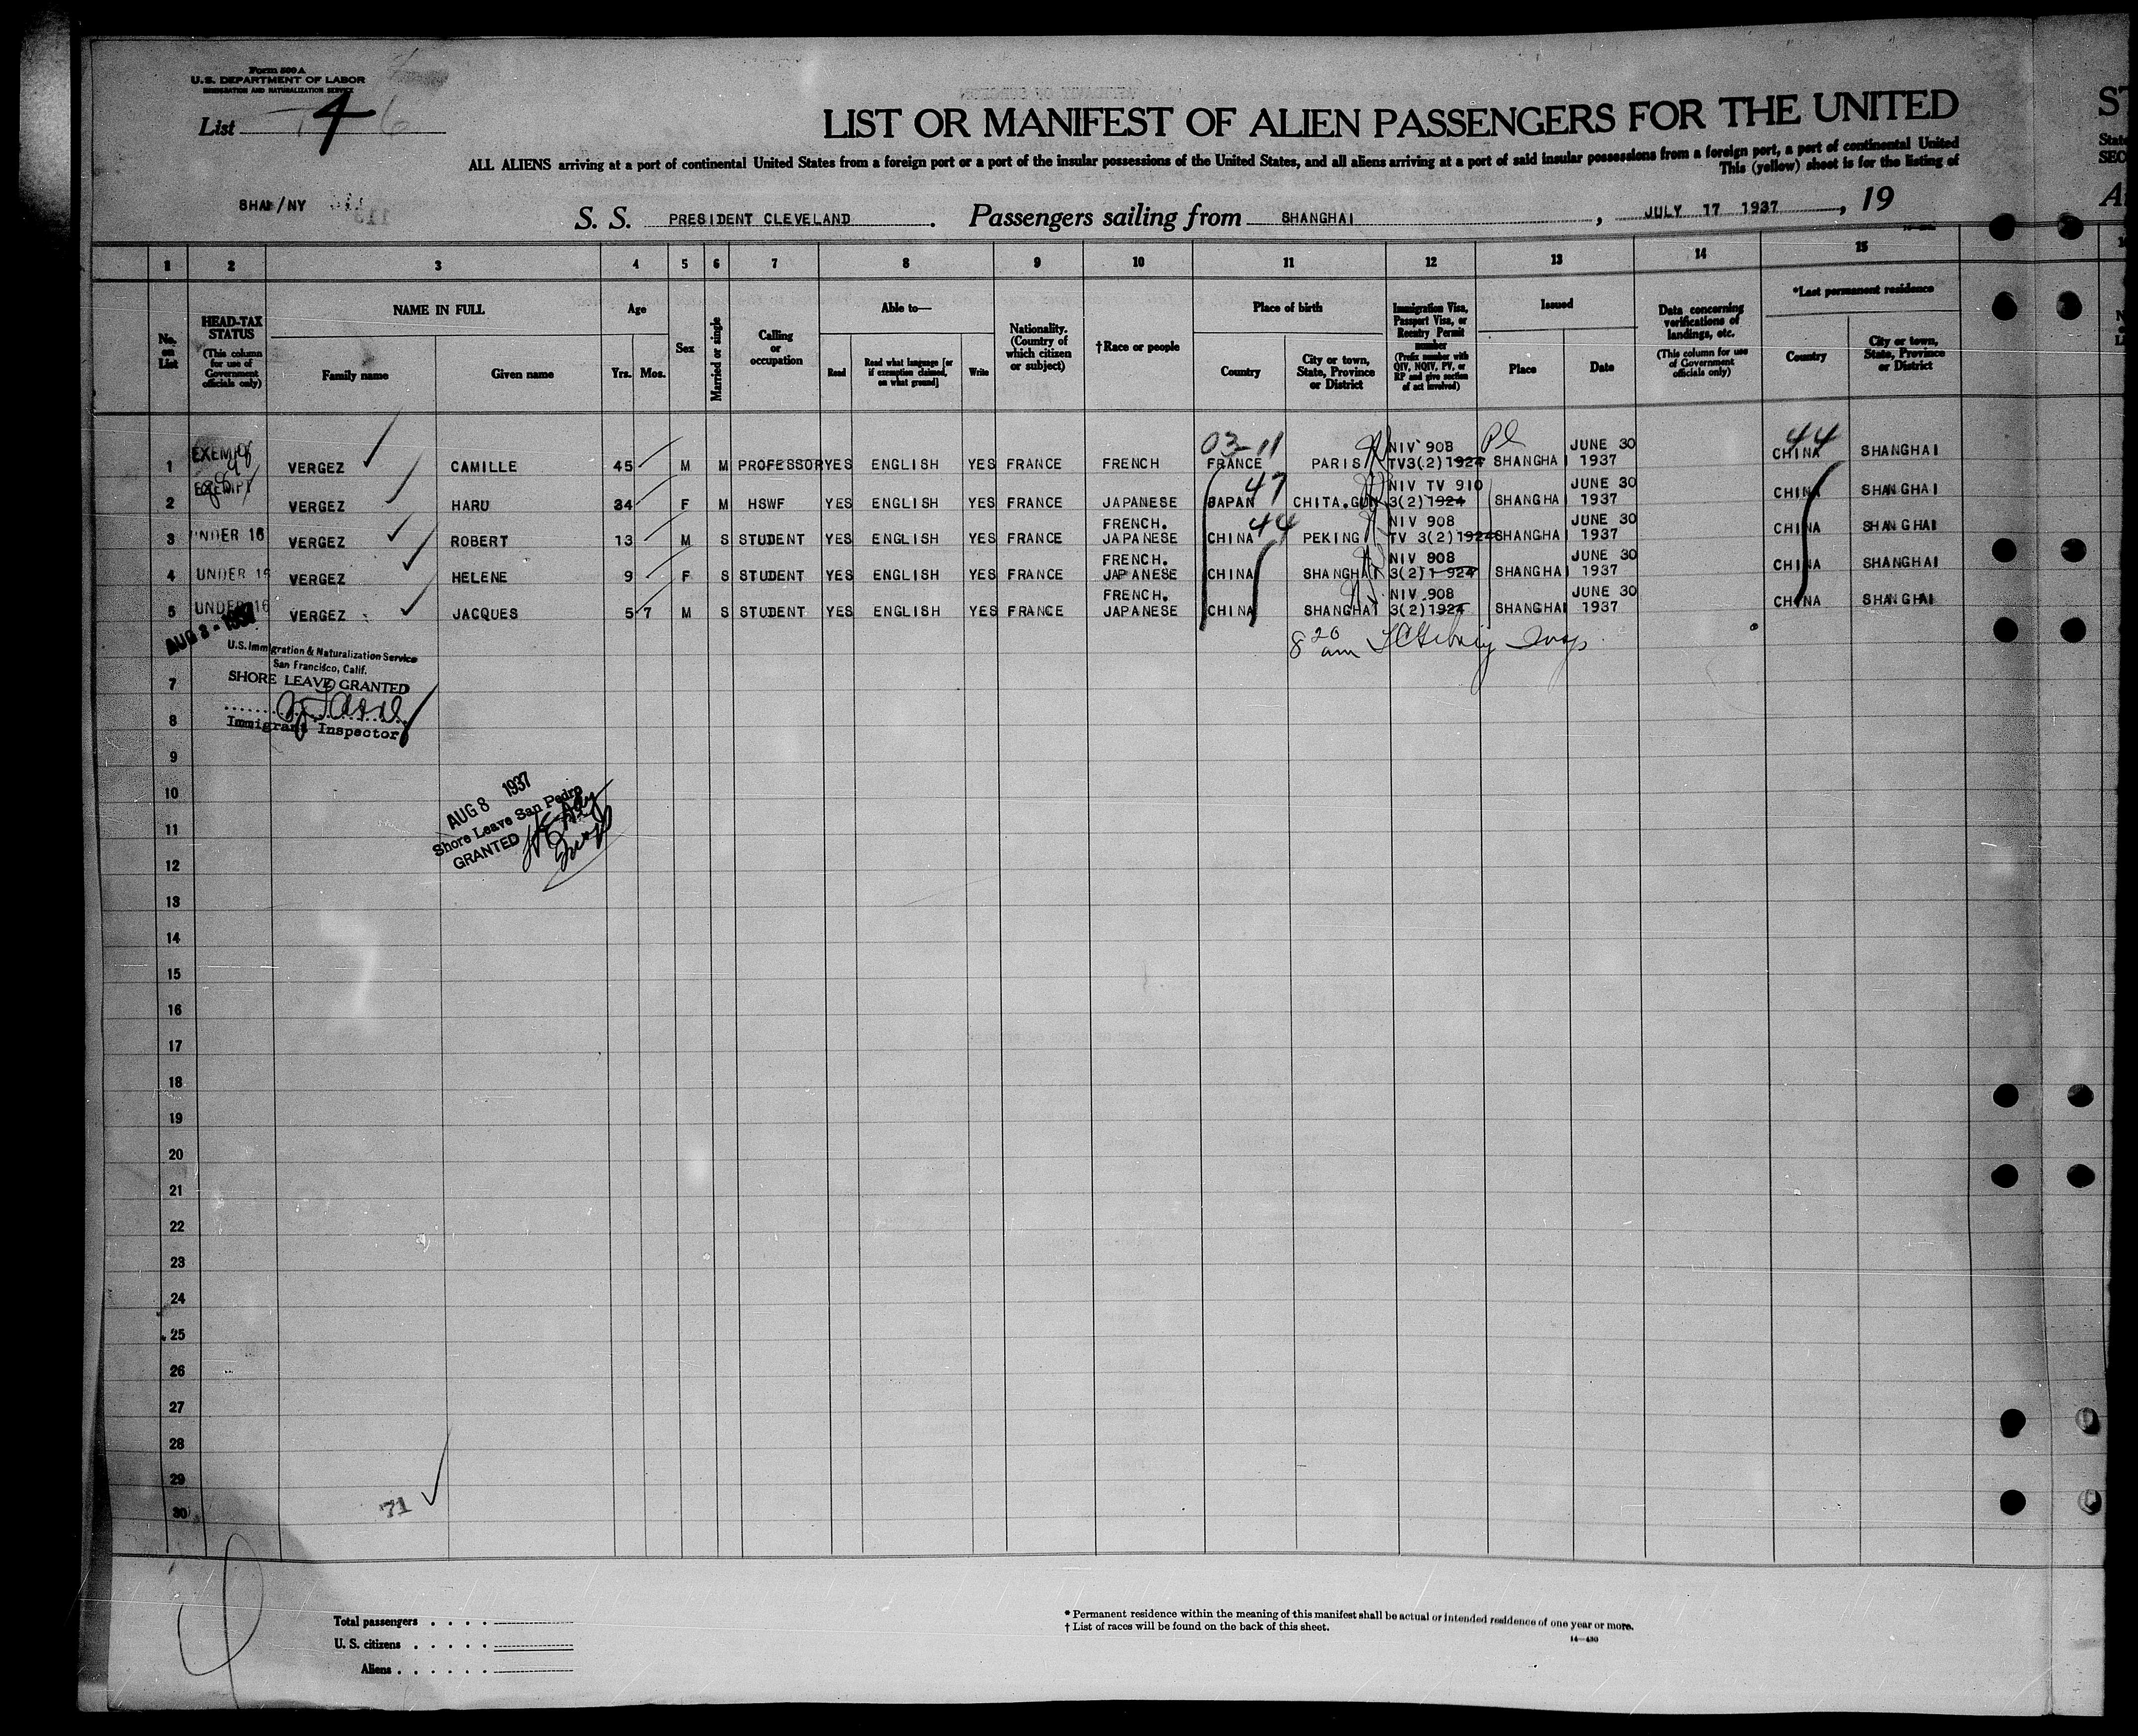 Form 500 A
U.S. DEPARTMENT OF LABOR
IMMIGRATION AND NATURALIZATION SERVICE
List 4
LIST OR MANIFEST OF ALIEN PASSENGERS FOR THE UNITED
ST
ALL ALIENS arriving at a port of continental United States from a foreign port or a port of the insular possessions of the United States, and all aliens arriving at a port of said insular possessions from a foreign port, a port of continental United
State
This (yellow) sheet is for the listing of
SEC
SHAI/NY
S. S. PRESIDENT CLEVELAND. Passengers sailing from SHANGHAI, JULY 17 1937, 19
1 2 3 4 5 6 7 8 9 10 11 12 13 14 15
No. on List
HEAD-TAX STATUS
(This column for use of Government officials only)
NAME IN FULL
Family name
Given name
Age
Yrs. Mos.
Sex
Married or single
Calling or occupation
Able to—
Read
Read what language [or if exemption claimed, on what ground]
Write
Nationality. (Country of which citizen or subject)
†Race or people
Place of birth
Country
City or town, State, Province or District
Immigration Visa, Passport Visa, or Reentry Permit number
(Prefix number with QIV, NQIV, PV, or RP and give section of act involved)
Issued
Place
Date
Data concerning verifications of landings, etc.
(This column for use of Government officials only)
*Last permanent residence
Country
City or town, State, Province or District
03-11
44
EXEMPT NIV 908 JUNE 30
1 VERGEZ CAMILLE 45 M M PROFESSOR YES ENGLISH YES FRANCE FRENCH FRANCE PARIS TV3(2)1924 SHANGHAI 1937 CHINA SHANGHAI
EXEMPT 47 NIV TV 910 JUNE 30
2 VERGEZ HARU 34 F M HSWF YES ENGLISH YES FRANCE JAPANESE JAPAN CHITA.GUN 3(2)1924 SHANGHAI 1937 CHINA SHANGHAI
FRENCH. 44 NIV 908 JUNE 30
3 UNDER 16 VERGEZ ROBERT 13 M S STUDENT YES ENGLISH YES FRANCE JAPANESE CHINA PEKING TV 3(2)1924 SHANGHAI 1937 CHINA SHANGHAI
FRENCH. NIV 908 JUNE 30
4 UNDER 16 VERGEZ HELENE 9 F S STUDENT YES ENGLISH YES FRANCE JAPANESE CHINA SHANGHAI 3(2)1924 SHANGHAI 1937 CHINA SHANGHAI
FRENCH. NIV 908 JUNE 30
5 UNDER 16 VERGEZ JACQUES 5 7 M S STUDENT YES ENGLISH YES FRANCE JAPANESE CHINA SHANGHAI 3(2)1924 SHANGHAI 1937 CHINA SHANGHAI
AUG 3 - 1937
8 20 am
U.S. Immigration & Naturalization Service
San Francisco, Calif.
SHORE LEAVE GRANTED
Immigrant Inspector
7
8
9
10
AUG 8 1937
Shore Leave San Pedro
GRANTED
11
12
13
14
15
16
17
18
19
20
21
22
23
24
25
26
27
28
29
30
71
Total passengers
U. S. citizens
Aliens
* Permanent residence within the meaning of this manifest shall be actual or intended residence of one year or more.
† List of races will be found on the back of this sheet.
14—430